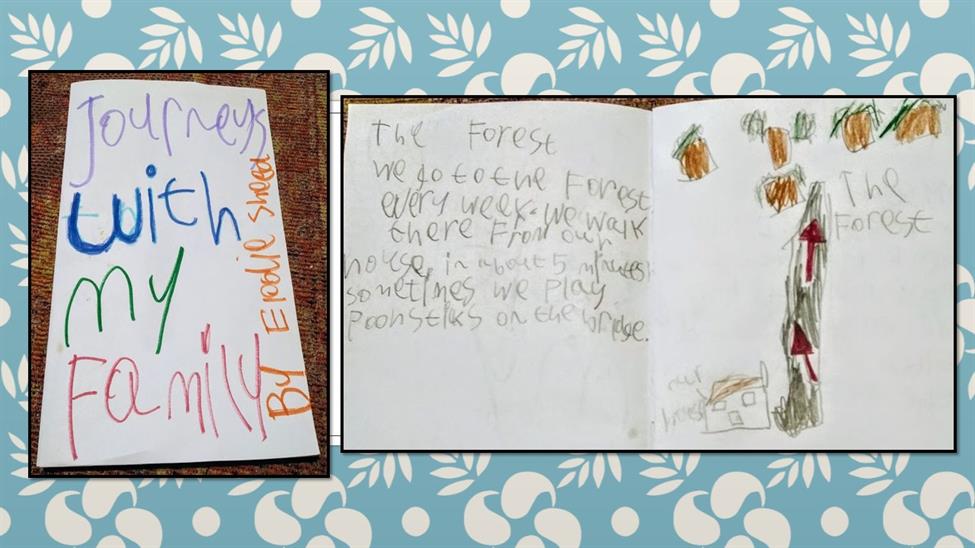 Journeys
with
my
Family
By Elodie
The Forest
we go to the Forest
every week. we walk
there From our
house, in about 5 minutes
sometimes we play
Poohstiks on the bridge.
The
Forest
our
house